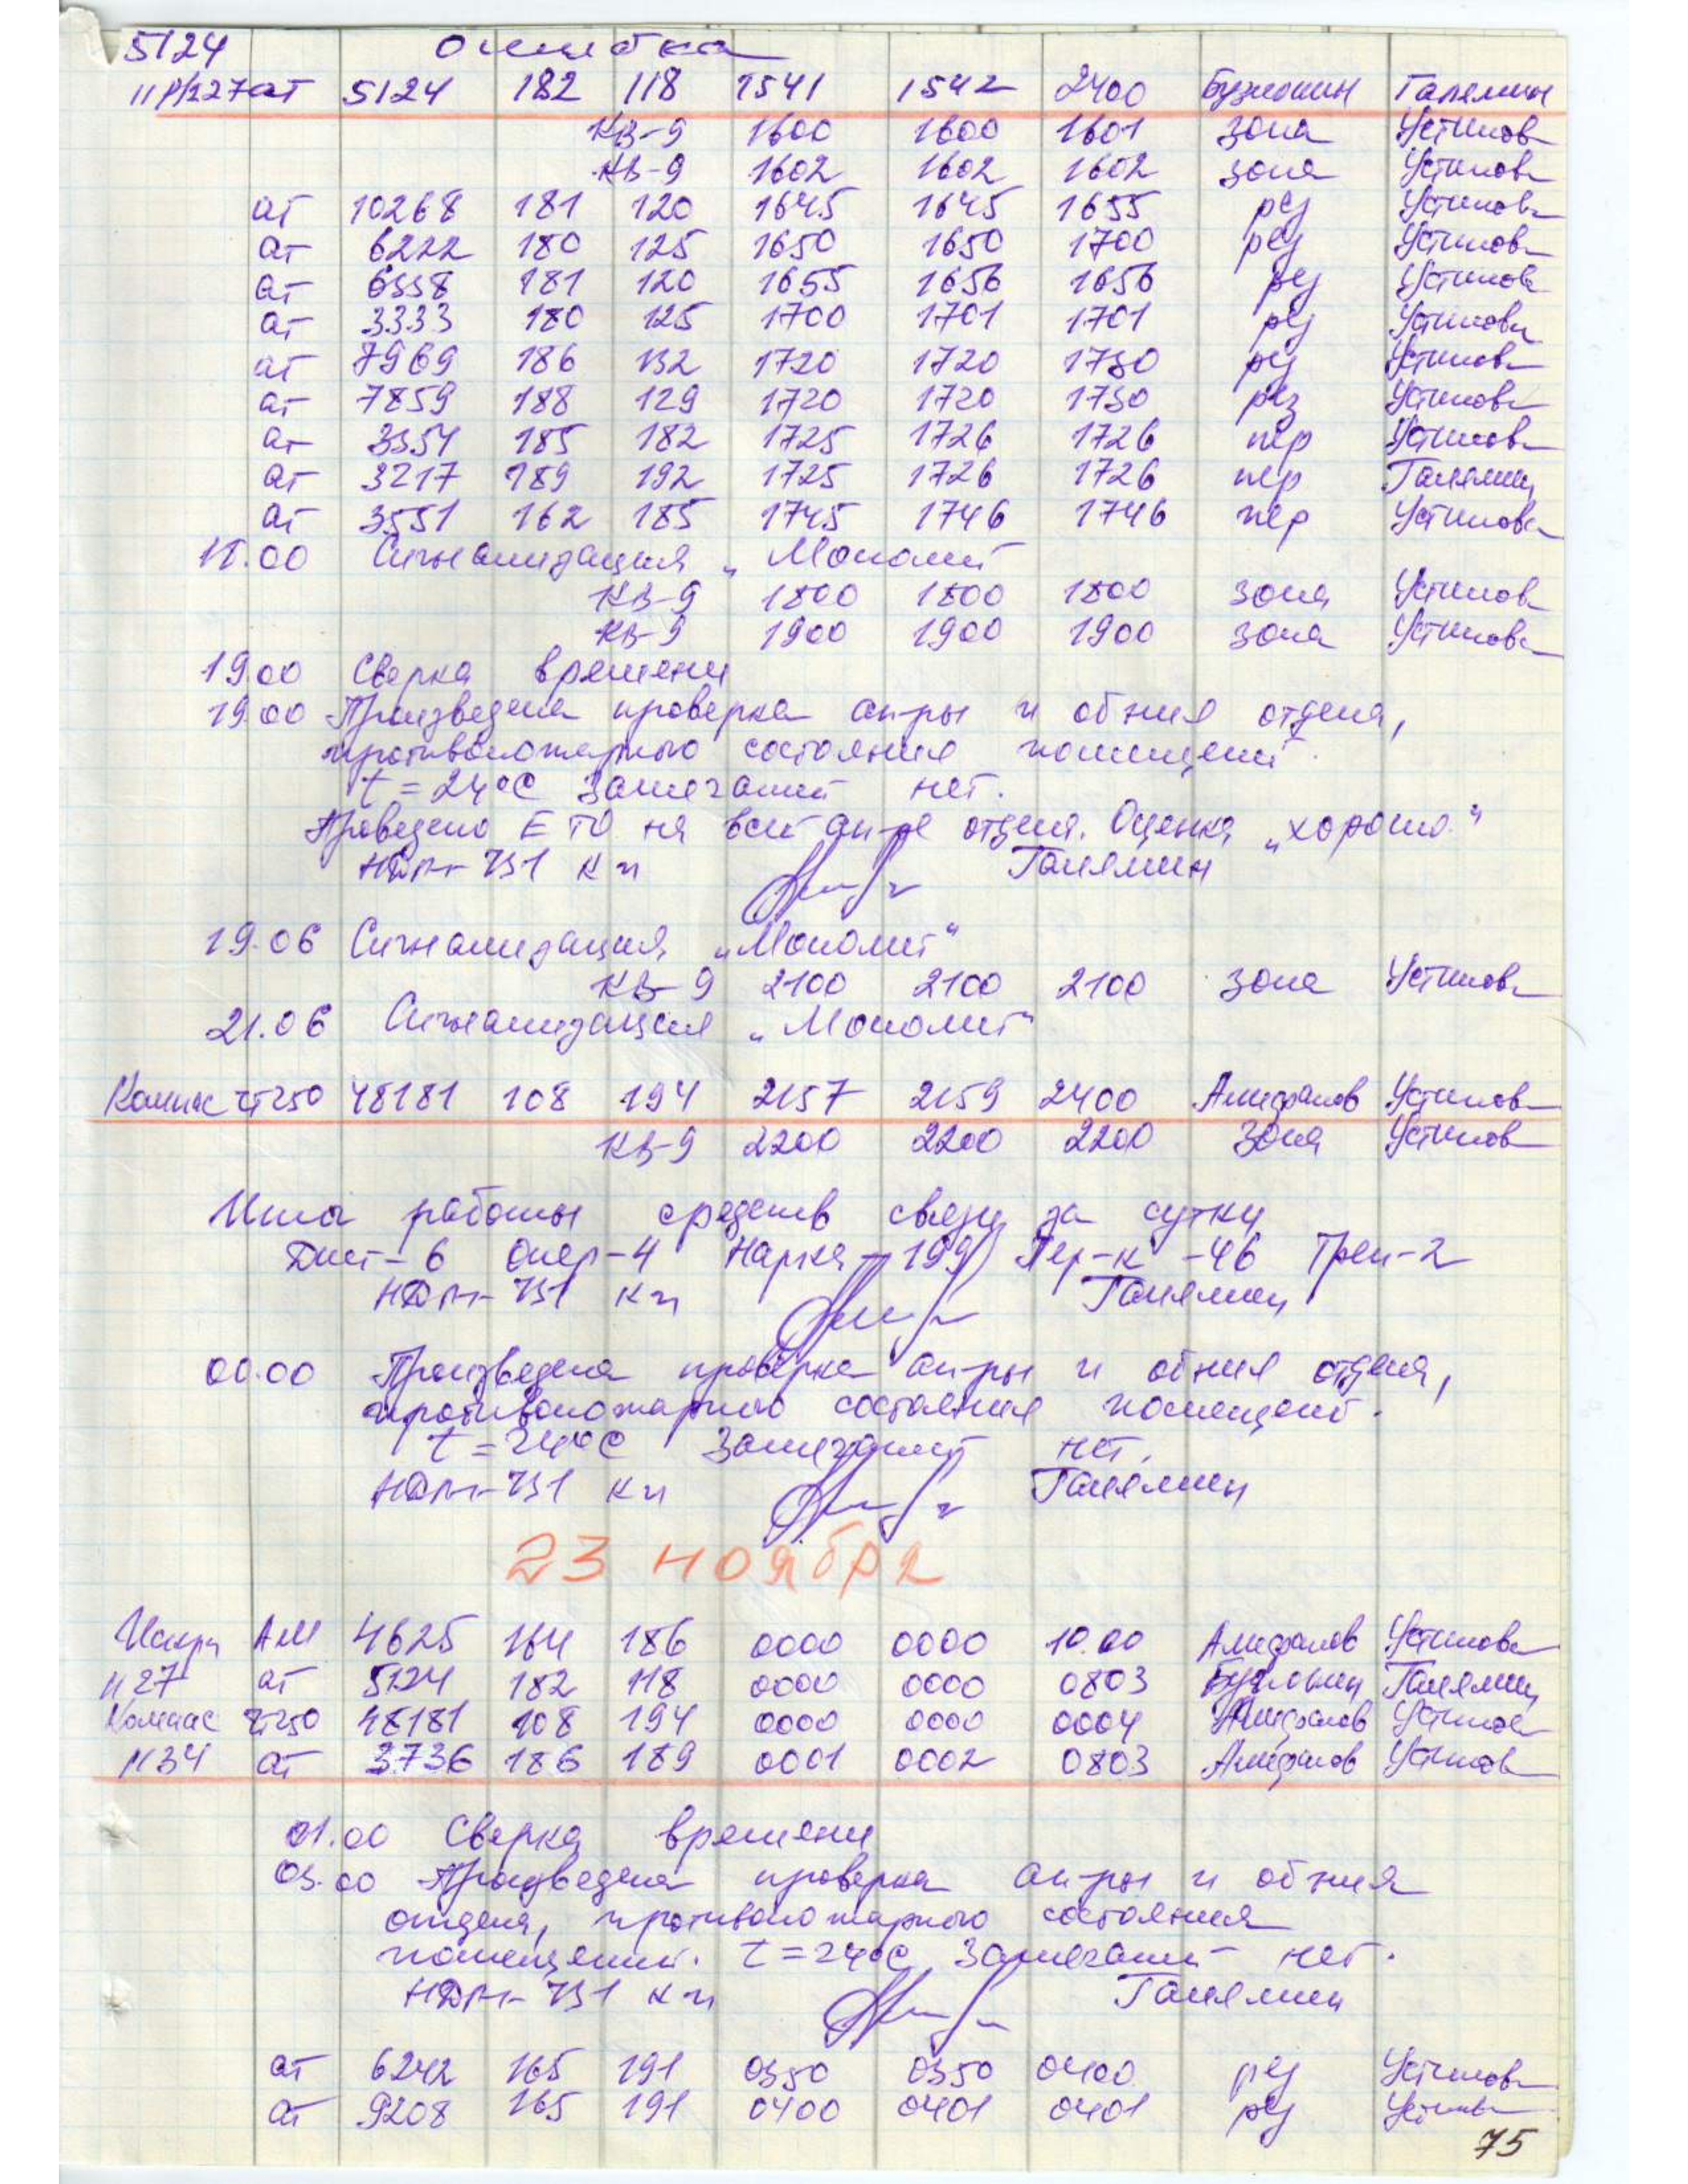 5124 ошибка
11Р/227 ат 5124 182 118 1541 1542 2400 Бузлокин Галямин
КВ-9 1600 1600 1601 зона Устинов
КВ-9 1602 1602 1602 зона Устинов
ат 10268 181 120 1645 1645 1655 рез Устинов
ат 6222 180 125 1650 1650 1700 рез Устинов
ат 6338 181 120 1655 1656 1656 рез Устинов
ат 3333 180 125 1700 1701 1701 рез Устинов
ат 7969 186 132 1720 1720 1730 рез Устинов
ат 7859 188 129 1720 1720 1730 рез Устинов
ат 3354 185 182 1725 1726 1726 пер Устинов
ат 3217 189 192 1725 1726 1726 пер Галямин
ат 3551 162 185 1745 1746 1746 пер Устинов
18.00 Сигнализация „Монолит
КВ-9 1800 1800 1800 зона Устинов
КВ-9 1900 1900 1900 зона Устинов
19.00 Сверка времени
19.00 Произведена проверка ап-ры и об-ния отдела,
противопожарного состояния помещений.
t = 24°С Замечаний нет.
Проведено ЕТО на всей ап-ре отдела. Оценка „хорошо"
НДП-731 к-н Галямин
19.06 Сигнализация „Монолит"
КВ-9 2100 2100 2100 зона Устинов
21.06 Сигнализация „Монолит"
Компас чт250 48181 108 194 2157 2159 2400 Устинов
КВ-9 2200 2200 2200 зона Устинов
Итог работы средств связи за сутки
Дист-6 Опер-4 Нарка-199 Пер-к -46 Трен-2
НДП-731 к-н Галямин
00.00 Произведена проверка ап-ры и об-ния отдела,
противопожарного состояния помещений.
t = 24°С Замечаний нет.
НДП-731 к-н Галямин
23 ноября
Искра АМ 4625 164 186 0000 0000 10.00 Устинов
н27 ат 5124 182 118 0000 0000 0803 Галямин
Компас чт250 48181 108 194 0000 0000 0004 Устинов
н34 ат 3736 186 189 0001 0002 0803 Устинов
01.00 Сверка времени
03.00 Произведена проверка ап-ры и об-ния
отдела, противопожарного состояния
помещений. t = 24°С Замечаний нет.
НДП-731 к-н Галямин
ат 6242 165 191 0350 0350 0400 рез Устинов
ат 9208 165 191 0400 0401 0401 рез Устинов
75